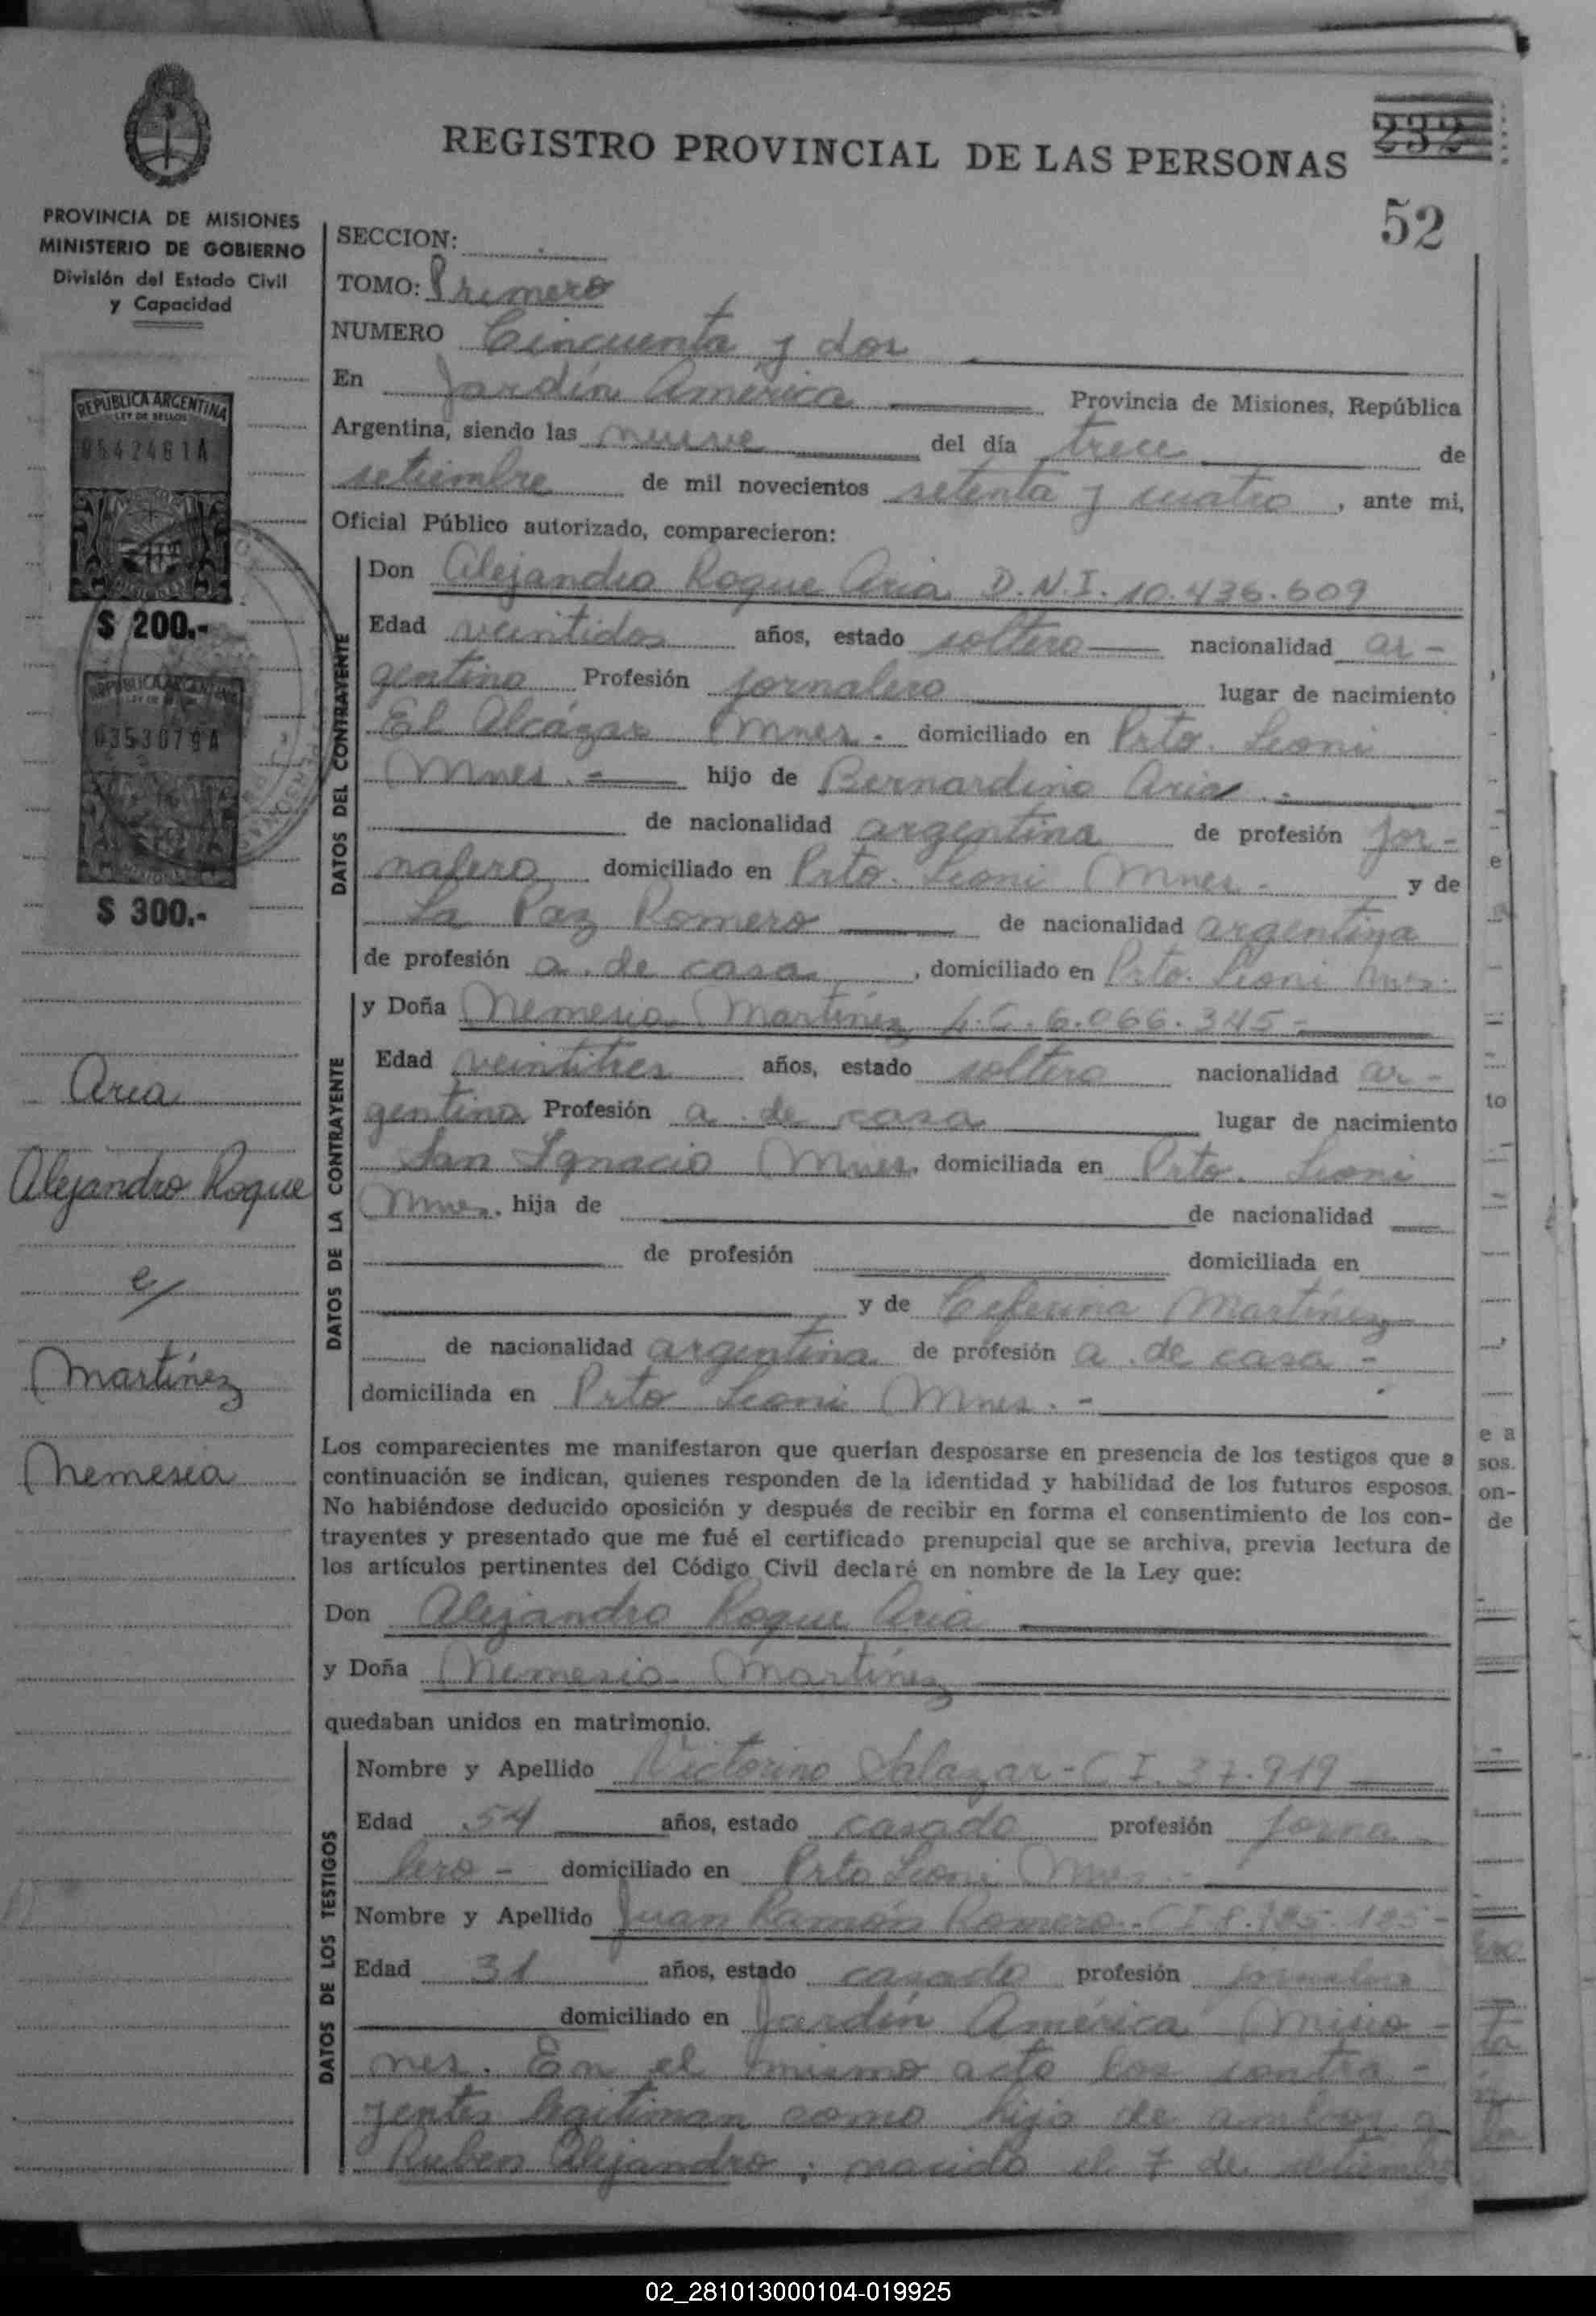 REGISTRO PROVINCIAL DE LAS PERSONAS
232
52
PROVINCIA DE MISIONES
MINISTERIO DE GOBIERNO
División del Estado Civil
y Capacidad
REPUBLICA ARGENTINA
LEY DE SELLOS
0542481A
$ 200.-
0353079A
$ 300.-
Aria
Alejandro Roque
c/
Martínez
Nemesia
SECCION:
TOMO: Primero
NUMERO Cincuenta y dos
En Jardín América Provincia de Misiones, República
Argentina, siendo las nueve del día trece de
setiembre de mil novecientos setenta y cuatro, ante mi,
Oficial Público autorizado, comparecieron:
DATOS DEL CONTRAYENTE
Don Alejandro Roque Aria D.N.I. 10.436.609
Edad veintidos años, estado soltero nacionalidad ar-
gentina Profesión jornalero lugar de nacimiento
El Alcázar Mnes. domiciliado en Prto. Leoni
Mnes. - hijo de Bernardino Aria
de nacionalidad argentina de profesión jor-
nalero domiciliado en Prto. Leoni Mnes. y de
La Paz Romero de nacionalidad argentina
de profesión a. de casa, domiciliado en Prto. Leoni Mns.
DATOS DE LA CONTRAYENTE
y Doña Nemesia Martínez L.C. 6.066.345-
Edad veintitres años, estado soltera nacionalidad ar-
gentina Profesión a. de casa lugar de nacimiento
San Ignacio Mnes. domiciliada en Prto. Leoni
Mnes. hija de de nacionalidad
de profesión domiciliada en
y de Ceferina Martínez
de nacionalidad argentina de profesión a. de casa -
domiciliada en Prto Leoni Mnes. -
Los comparecientes me manifestaron que querían desposarse en presencia de los testigos que a
continuación se indican, quienes responden de la identidad y habilidad de los futuros esposos.
No habiéndose deducido oposición y después de recibir en forma el consentimiento de los con-
trayentes y presentado que me fué el certificado prenupcial que se archiva, previa lectura de
los artículos pertinentes del Código Civil declaré en nombre de la Ley que:
Don Alejandro Roque Aria
y Doña Nemesia Martínez
quedaban unidos en matrimonio.
DATOS DE LOS TESTIGOS
Nombre y Apellido Victorino Salazar - C I. 37.919
Edad 54 años, estado casado profesión jorna
lero - domiciliado en Prto Leoni Mnes.
Nombre y Apellido Juan Ramón Romero - CI
Edad 31 años, estado casado profesión jornalero
domiciliado en Jardín América Misio-
nes. En el mismo acto los contra-
yentes legitiman como hijo de ambos a
Ruben Alejandro; nacido el 7 de setiembre
02_281013000104-019925